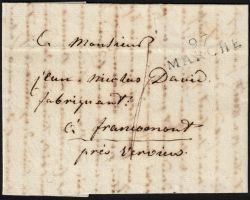 a Monsieur
97
MARCHE
jean nicolas David
fabriquant
a francomont
près Verviers